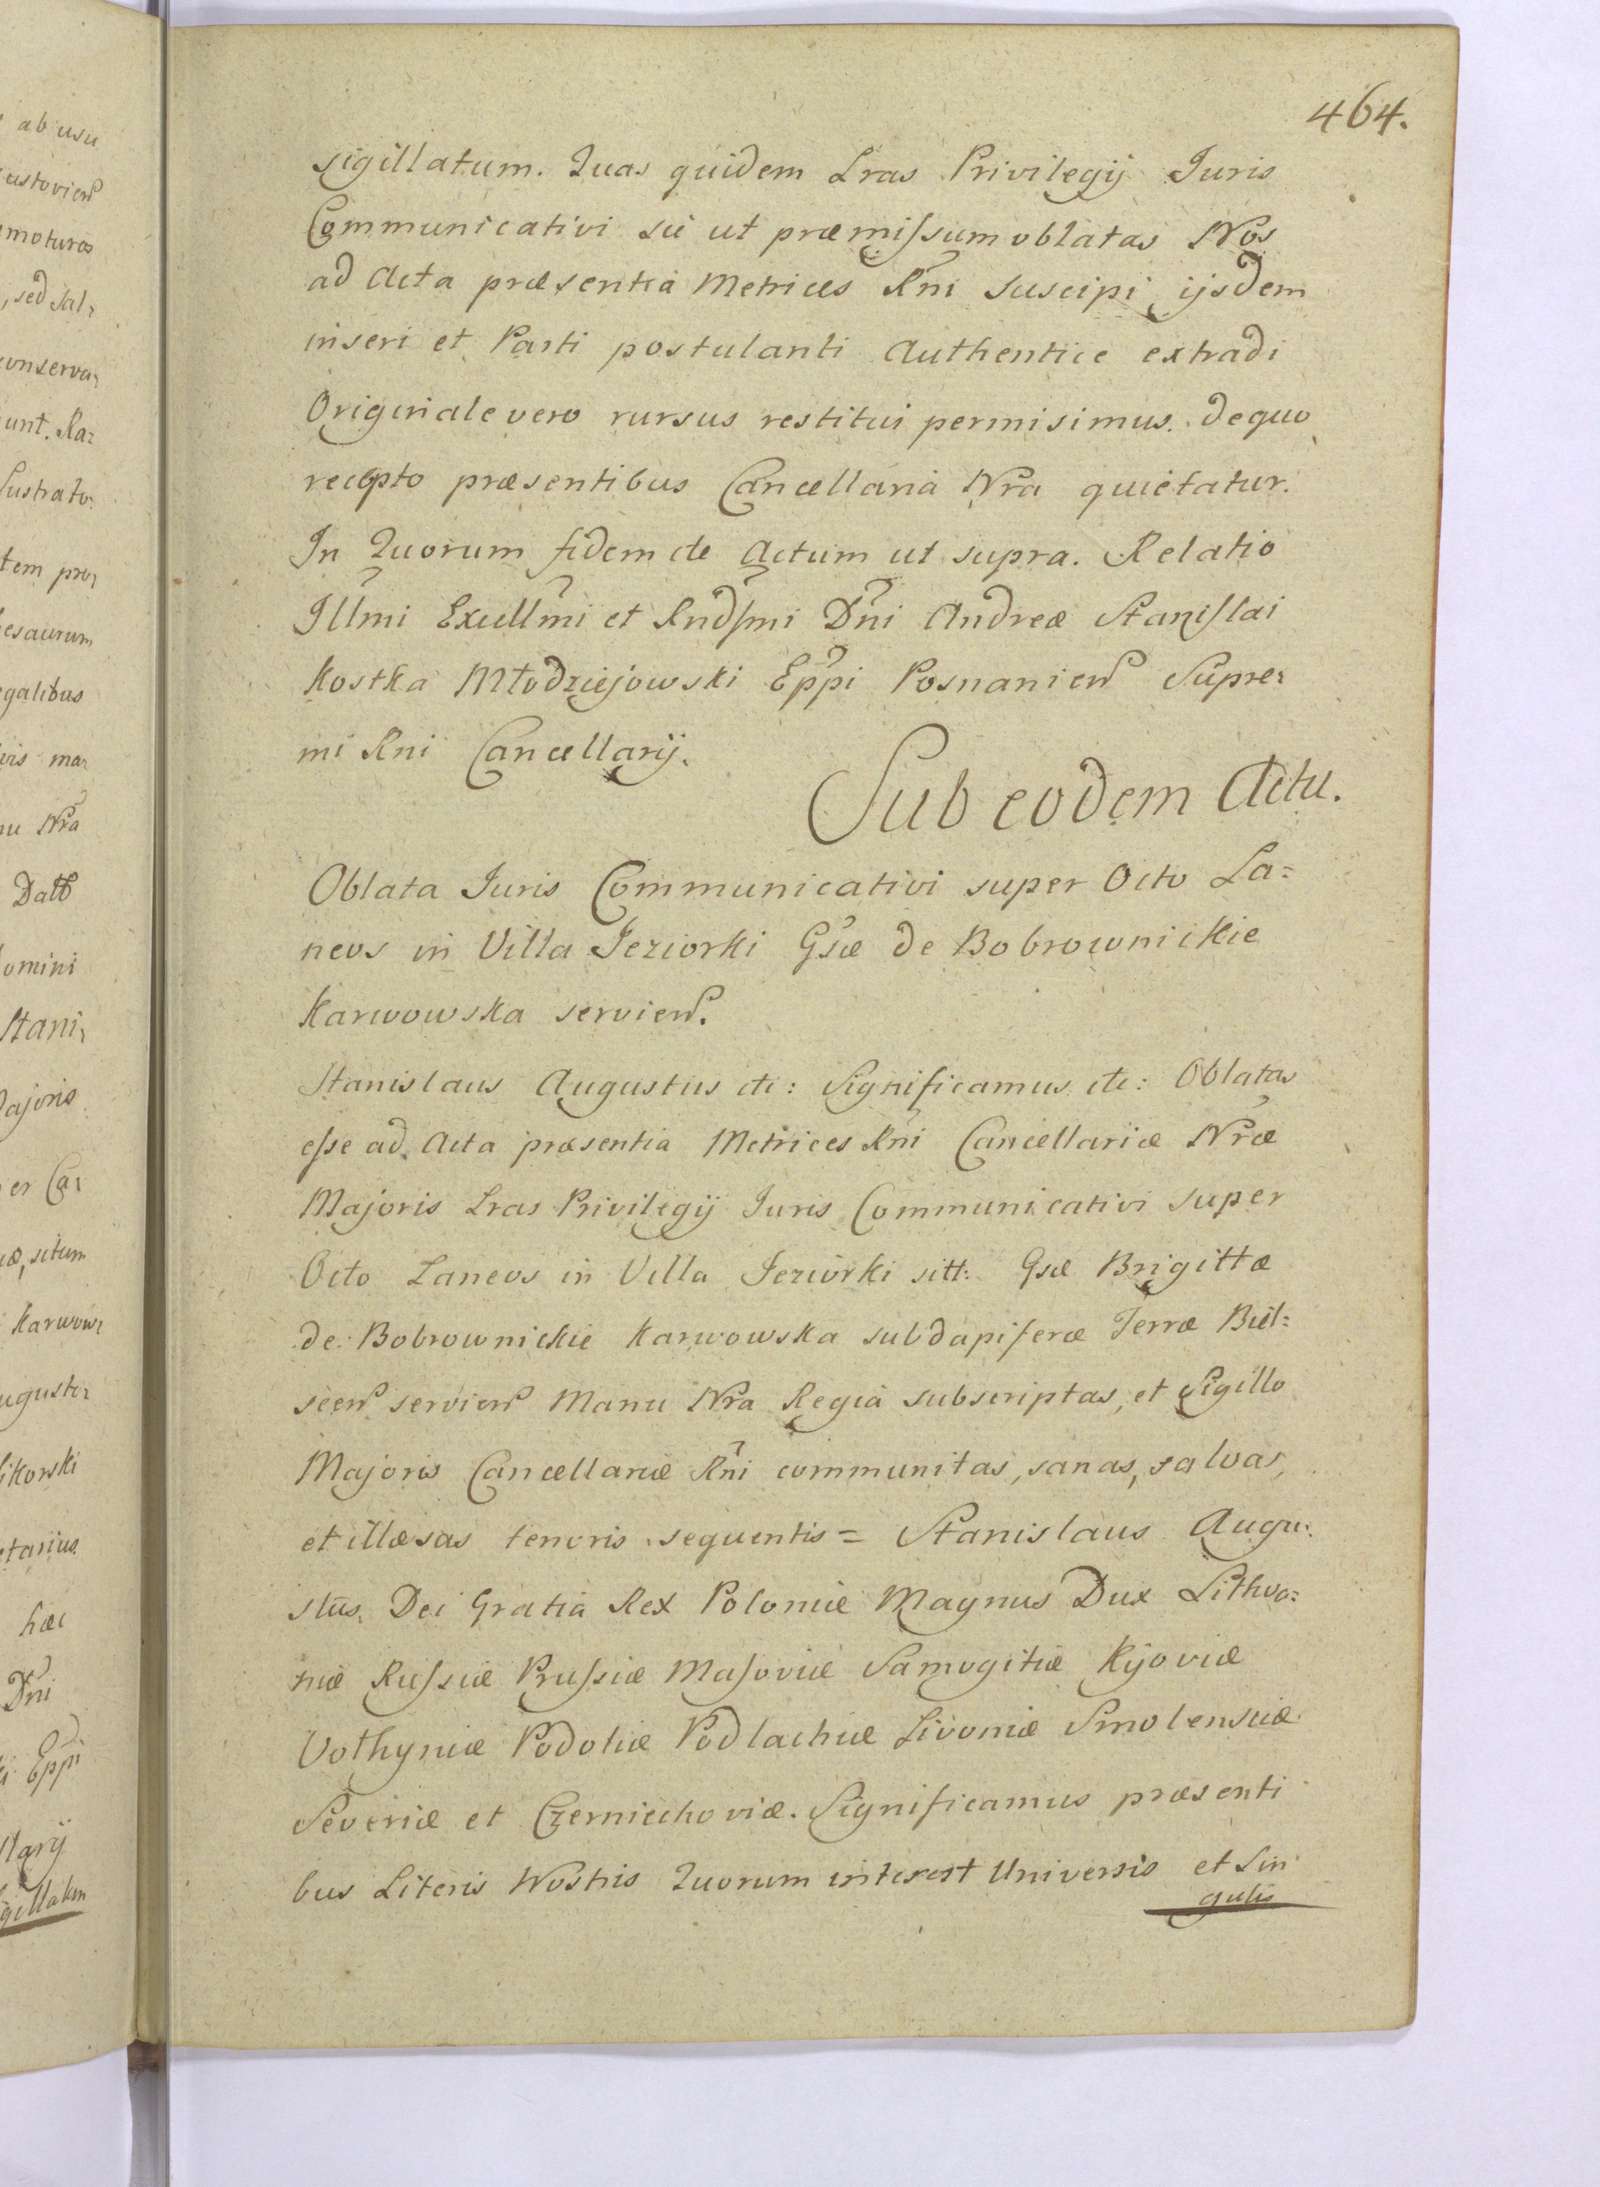 464.
sigillatum. Quas quidem Lras Privilegij Juris
Communicativi sic ut præmissum oblatas Nos
ad Acta præsentia Metrices Rni suscipi ijsdem
inseri et Parti postulanti Authentice extradi
Originale vero rursus restitui permisimus. De quo
recepto præsentibus Cancellaria Nra quietatur.
In Quorum fidem etc Actum ut supra. Relatio
Illmi Excellmi et Rndsmi Dni Andreæ Stanislai
Kostka Młodziejowski Eppi Posnanien Supre:
mi Rni Cancellarij.
Sub eodem Actu.
Oblata Juris Communicativi super Octo La=
neos in Villa Jeziorki Gsæ de Bobrownickie
Karwowska servien.
Stanislaus Augustus etc: Significamus etc: Oblatas
esse ad Acta præsentia Metrices Rni Cancellariæ Nræ
Majoris Lras Privilegij Juris Communicativi super
Octo Laneos in Villa Jeziorki sitt: Gsæ Brigittæ
de Bobrownickie Karwowska subdapiferæ Terræ Biel=
scen servien Manu Nra Regia subscriptas, et Sigillo
Majoris Cancellariæ Rni communitas, sanas, salvas,
et illæsas tenoris sequentis = Stanislaus Augu:
stus Dei Gratia Rex Poloniæ Magnus Dux Lithva=
niæ Russiæ Prussiæ Masoviæ Samogitiæ Kijoviæ
Volhyniæ Podoliæ Podlachiæ Livoniæ Smolensciæ
Severiæ et Czerniechoviæ. Significamus præsenti
bus Literis Nostris Quorum interest Universis et Sin
gulis